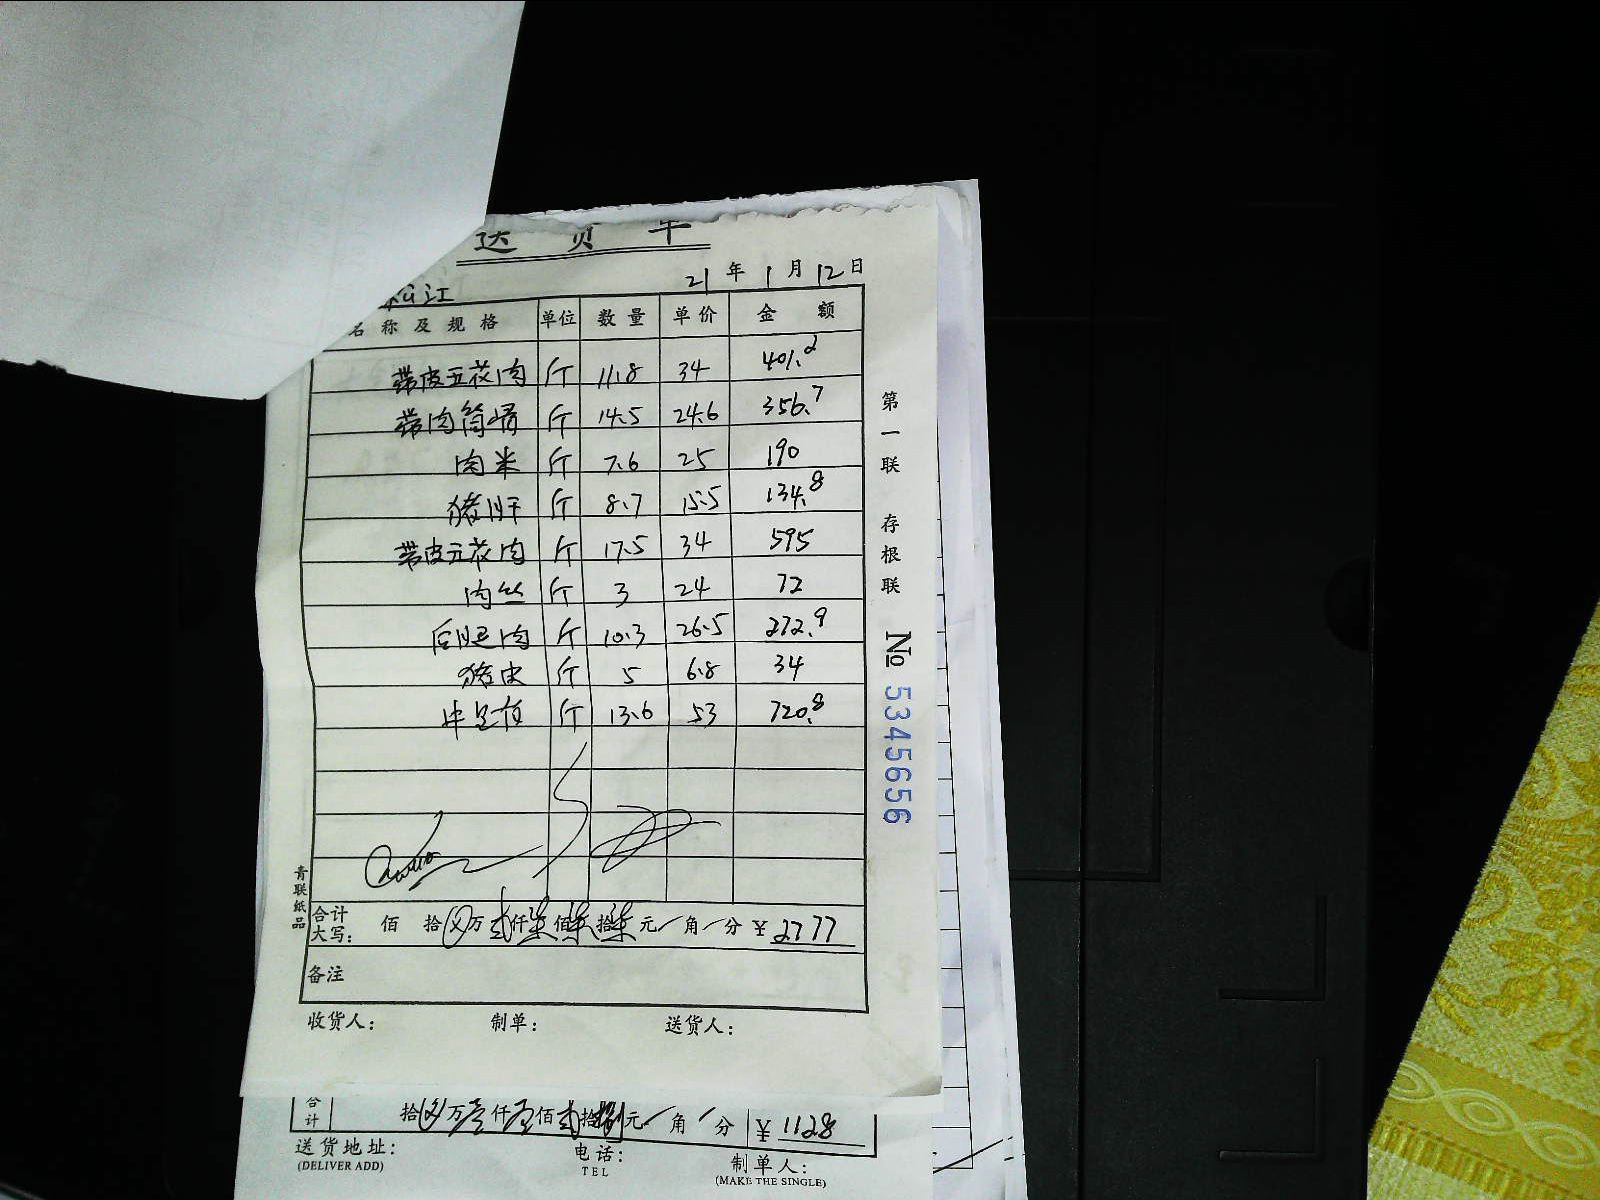 送货单
松江 21年1月12日
名称及规格 单位 数量 单价 金额
带皮五花肉 斤 11.8 34 401.2
带肉筒骨 斤 14.5 24.6 356.7
肉米 斤 7.6 25 190
猪肝 斤 8.7 15.5 134.8
带皮五花肉 斤 17.5 34 595
肉丝 斤 3 24 72
后腿肉 斤 10.3 26.5 272.9
猪皮 斤 5 6.8 34
斤 13.6 53 720.8
合计大写: 佰 拾 万贰仟柒佰柒拾柒元/角/分 ¥2777
备注
收货人: 制单: 送货人:
第一联 存根联 № 5345656
青联纸品
合计 拾 万壹仟壹佰贰拾捌元/角/分 ¥1128
送货地址: 电话: 制单人:
(DELIVER ADD) TEL (MAKE THE SINGLE)